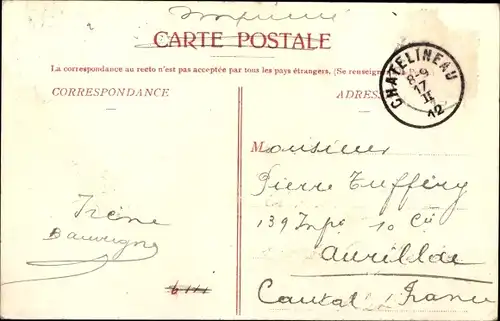 Imprimé
CARTE POSTALE
La correspondance au recto n'est pas acceptée par tous les pays étrangers. (Se renseign
CORRESPONDANCE
ADRES
CHATELINEAU
8-9
17
II
12
Monsieur
Pierre Tuffery
139 Infie 10 Cie
Aurillac
Cantal France
Irène
Bauvregne